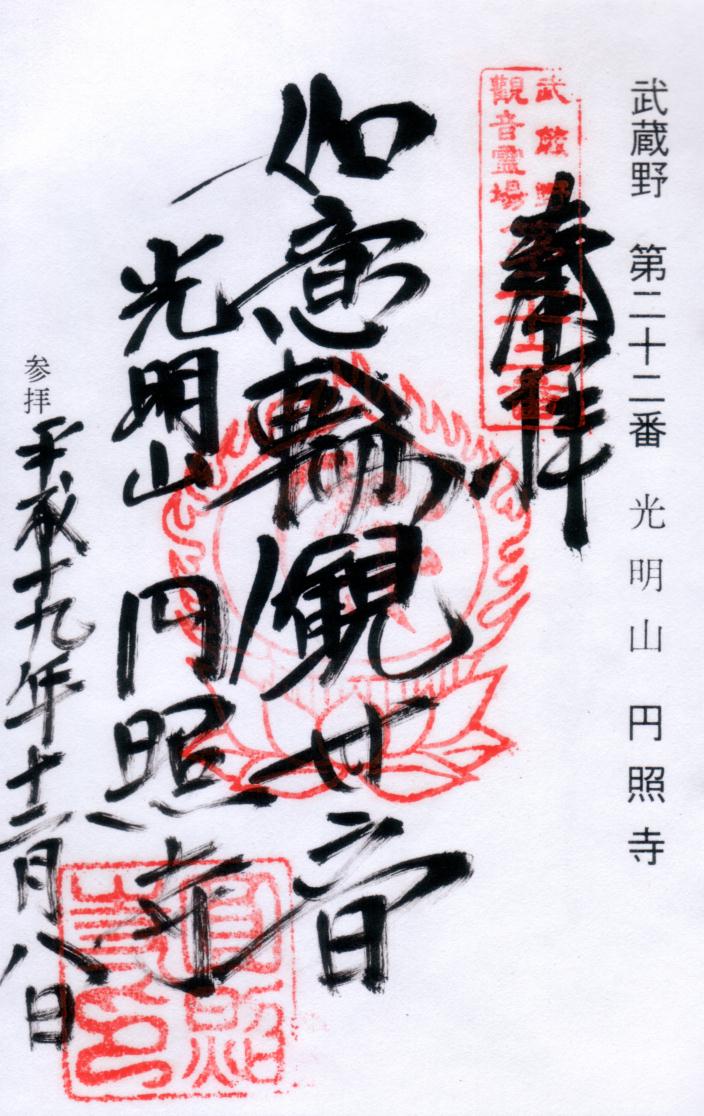 武蔵野 第二十二番 光明山 円照寺
武蔵野第二十二番
觀音靈場
奉拝
如意輪観世音
光明山 円照寺
参拝 平成十九年十二月八日
圓照
寺印